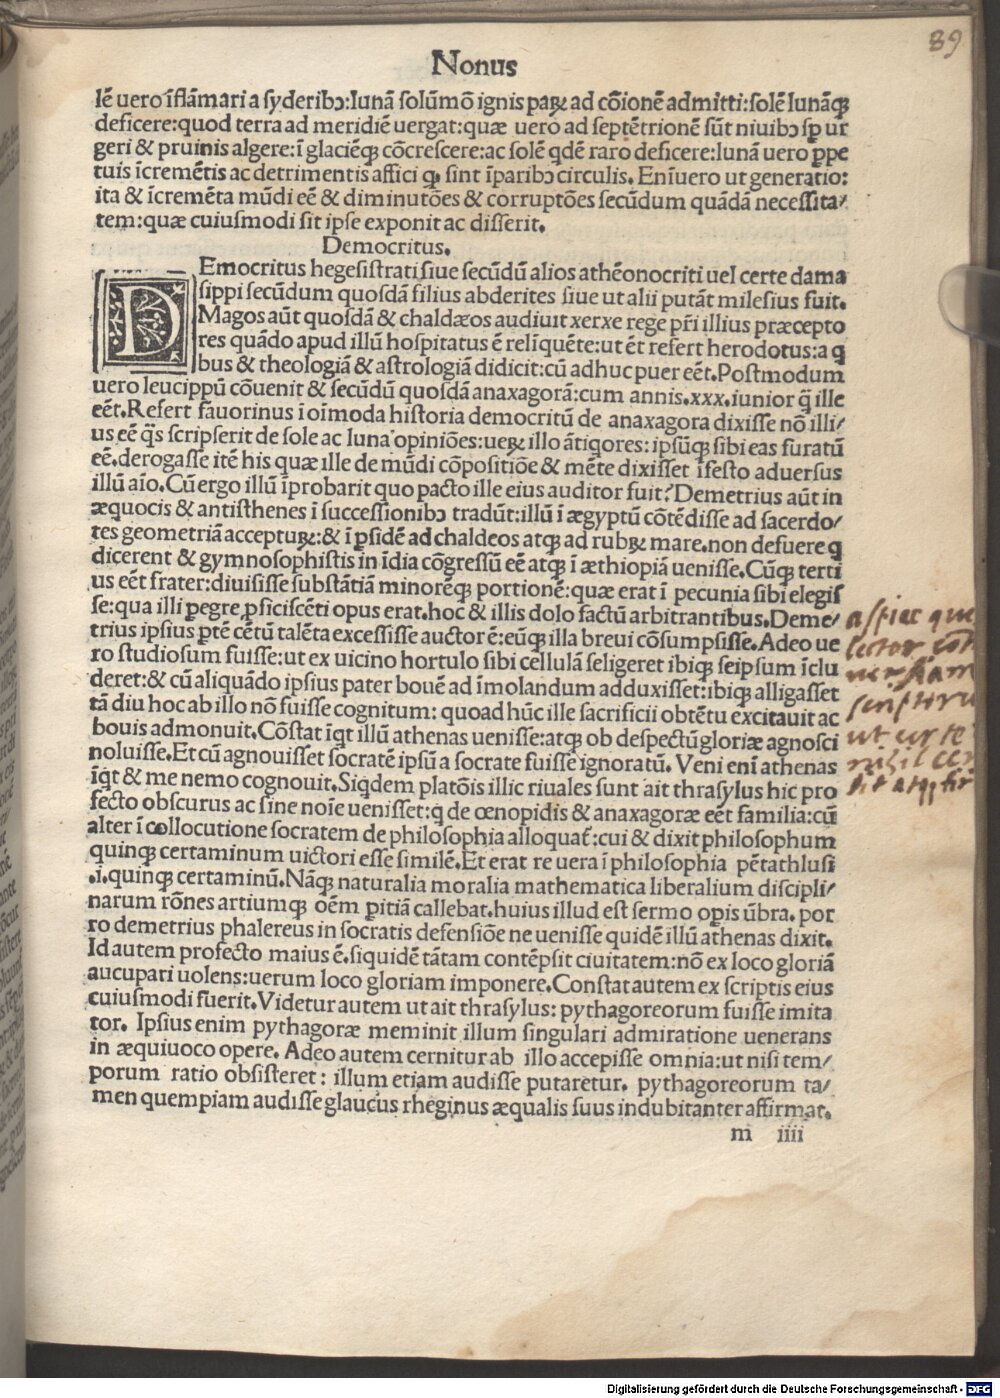 89
Nonus
lē uero īflāmari a syderibꝫ:lunā solūmō ignis paꝝ ad cōionē admitti:solē lunāqꝫ
deficere:quod terra ad meridiē uergat:quæ uero ad septētrionē sūt niuibꝫ sp ur
geri & pruinis algere:ī glaciēqꝫ cōcrescere:ac solē qdē raro deficere:lunā uero ꝑpe
tuis īcremētis ac detrimentis affici ꝙ sint īparibꝫ circulis. Enīuero ut generatio:
ita & īcremēta mūdi eē & diminutōes & corruptōes secūdum quādā necessita/
tem:quæ cuiusmodi sit ipse exponit ac disserit.
Democritus.
DEmocritus hegesistrati siue secūdū alios athēonocriti uel certe dama
sippi secūdum quosdā filius abderites siue ut alii putāt milesius fuit.
Magos aūt quosdā & chaldæos audiuit xerxe rege pr̄i illius præcepto
res quādo apud illū hospitatus ē relīquēte:ut ēt refert herodotus:a q
bus & theologiā & astrologiā didicit:cū adhuc puer eēt.Postmodum
uero leucippū cōuenit & secūdū quosdā anaxagorā:cum annis.xxx.iunior q̄ ille
eēt.Refert fauorinus ī oīmoda historia democritū de anaxagora dixisse nō illi/
us eē q̄s scripserit de sole ac luna opiniōes:ueꝝ illo ātiqores:ipsūqꝫ sibi eas furatū
eē.derogasse itē his quæ ille de mūdi cōpositiōe & mēte dixisset īfesto aduersus
illū aīo.Cū ergo illū īprobarit quo pacto ille eius auditor fuit?Demetrius aūt in
æquocis & antisthenes ī successionibꝫ tradūt:illū ī ægyptū cōtēdisse ad sacerdo/
tes geometriā accepturꝝ:& ī ꝑsidē ad chaldeos atqꝫ ad rubꝝ mare.non defuere q
dicerent & gymnosophistis in īdia cōgressū eē atqꝫ ī æthiopiā uenisse.Cūqꝫ terti
us eēt frater:diuisisse substātiā minorēqꝫ portionē:quæ erat ī pecunia sibi elegis
se:qua illi ꝑegre ꝓficiscēti opus erat.hoc & illis dolo factū arbitrantibus.Deme/
trius ipsius ꝑtē cētū talēta excessisse auctor ē:eūqꝫ illa breui cōsumpsisse.Adeo ue
ro studiosum fuisse:ut ex uicino hortulo sibi cellulā seligeret ibiqꝫ seipsum īclu
deret:& cū aliquādo ipsius pater bouē ad īmolandum adduxisset:ibiqꝫ alligasset
tā diu hoc ab illo nō fuisse cognitum: quoad hūc ille sacrificii obtētu excitauit ac
bouis admonuit.Cōstat īqt illū athenas uenisse:atqꝫ ob despectū gloriæ agnosci
noluisse.Et cū agnouisset socratē ipsū a socrate fuisse ignoratū. Veni enī athenas
īqt & me nemo cognouit.Siqdem platōis illic riuales sunt ait thrasylus hic pro
fecto obscurus ac sine noīe uenisset:q̄ de œnopidis & anaxagoræ eēt familia:cū
alter ī collocutione socratem de philosophia alloquat̄:cui & dixit philosophum
quinqꝫ certaminum uictori esse similē.Et erat re uera ī philosophia pētathlusi
.i.quinqꝫ certaminū.Nāqꝫ naturalia moralia mathematica liberalium discipli/
narum rōnes artiumqꝫ oēm ꝑitiā callebat.huius illud est sermo oꝑis ūbra. por
ro demetrius phalereus in socratis defensiōe ne uenisse quidē illū athenas dixit.
Id autem profecto maius ē.siquidē tātam contēpsit ciuitatem:nō ex loco gloriā
aucupari uolens:uerum loco gloriam imponere.Constat autem ex scriptis eius
cuiusmodi fuerit.Videtur autem ut ait thrasylus: pythagoreorum fuisse imita
tor. Ipsius enim pythagoræ meminit illum singulari admiratione uenerans
in æquiuoco opere. Adeo autem cernitur ab illo accepisse omnia:ut nisi tem/
porum ratio obsisteret: illum etiam audisse putaretur. pythagoreorum ta/
men quempiam audisse glaucus rheginus æqualis suus indubitanter affirmat.
m iiii
aspice que
lector
scriptoru
ut
nihil
Digitalisierung gefördert durch die Deutsche Forschungsgemeinschaft - DFG